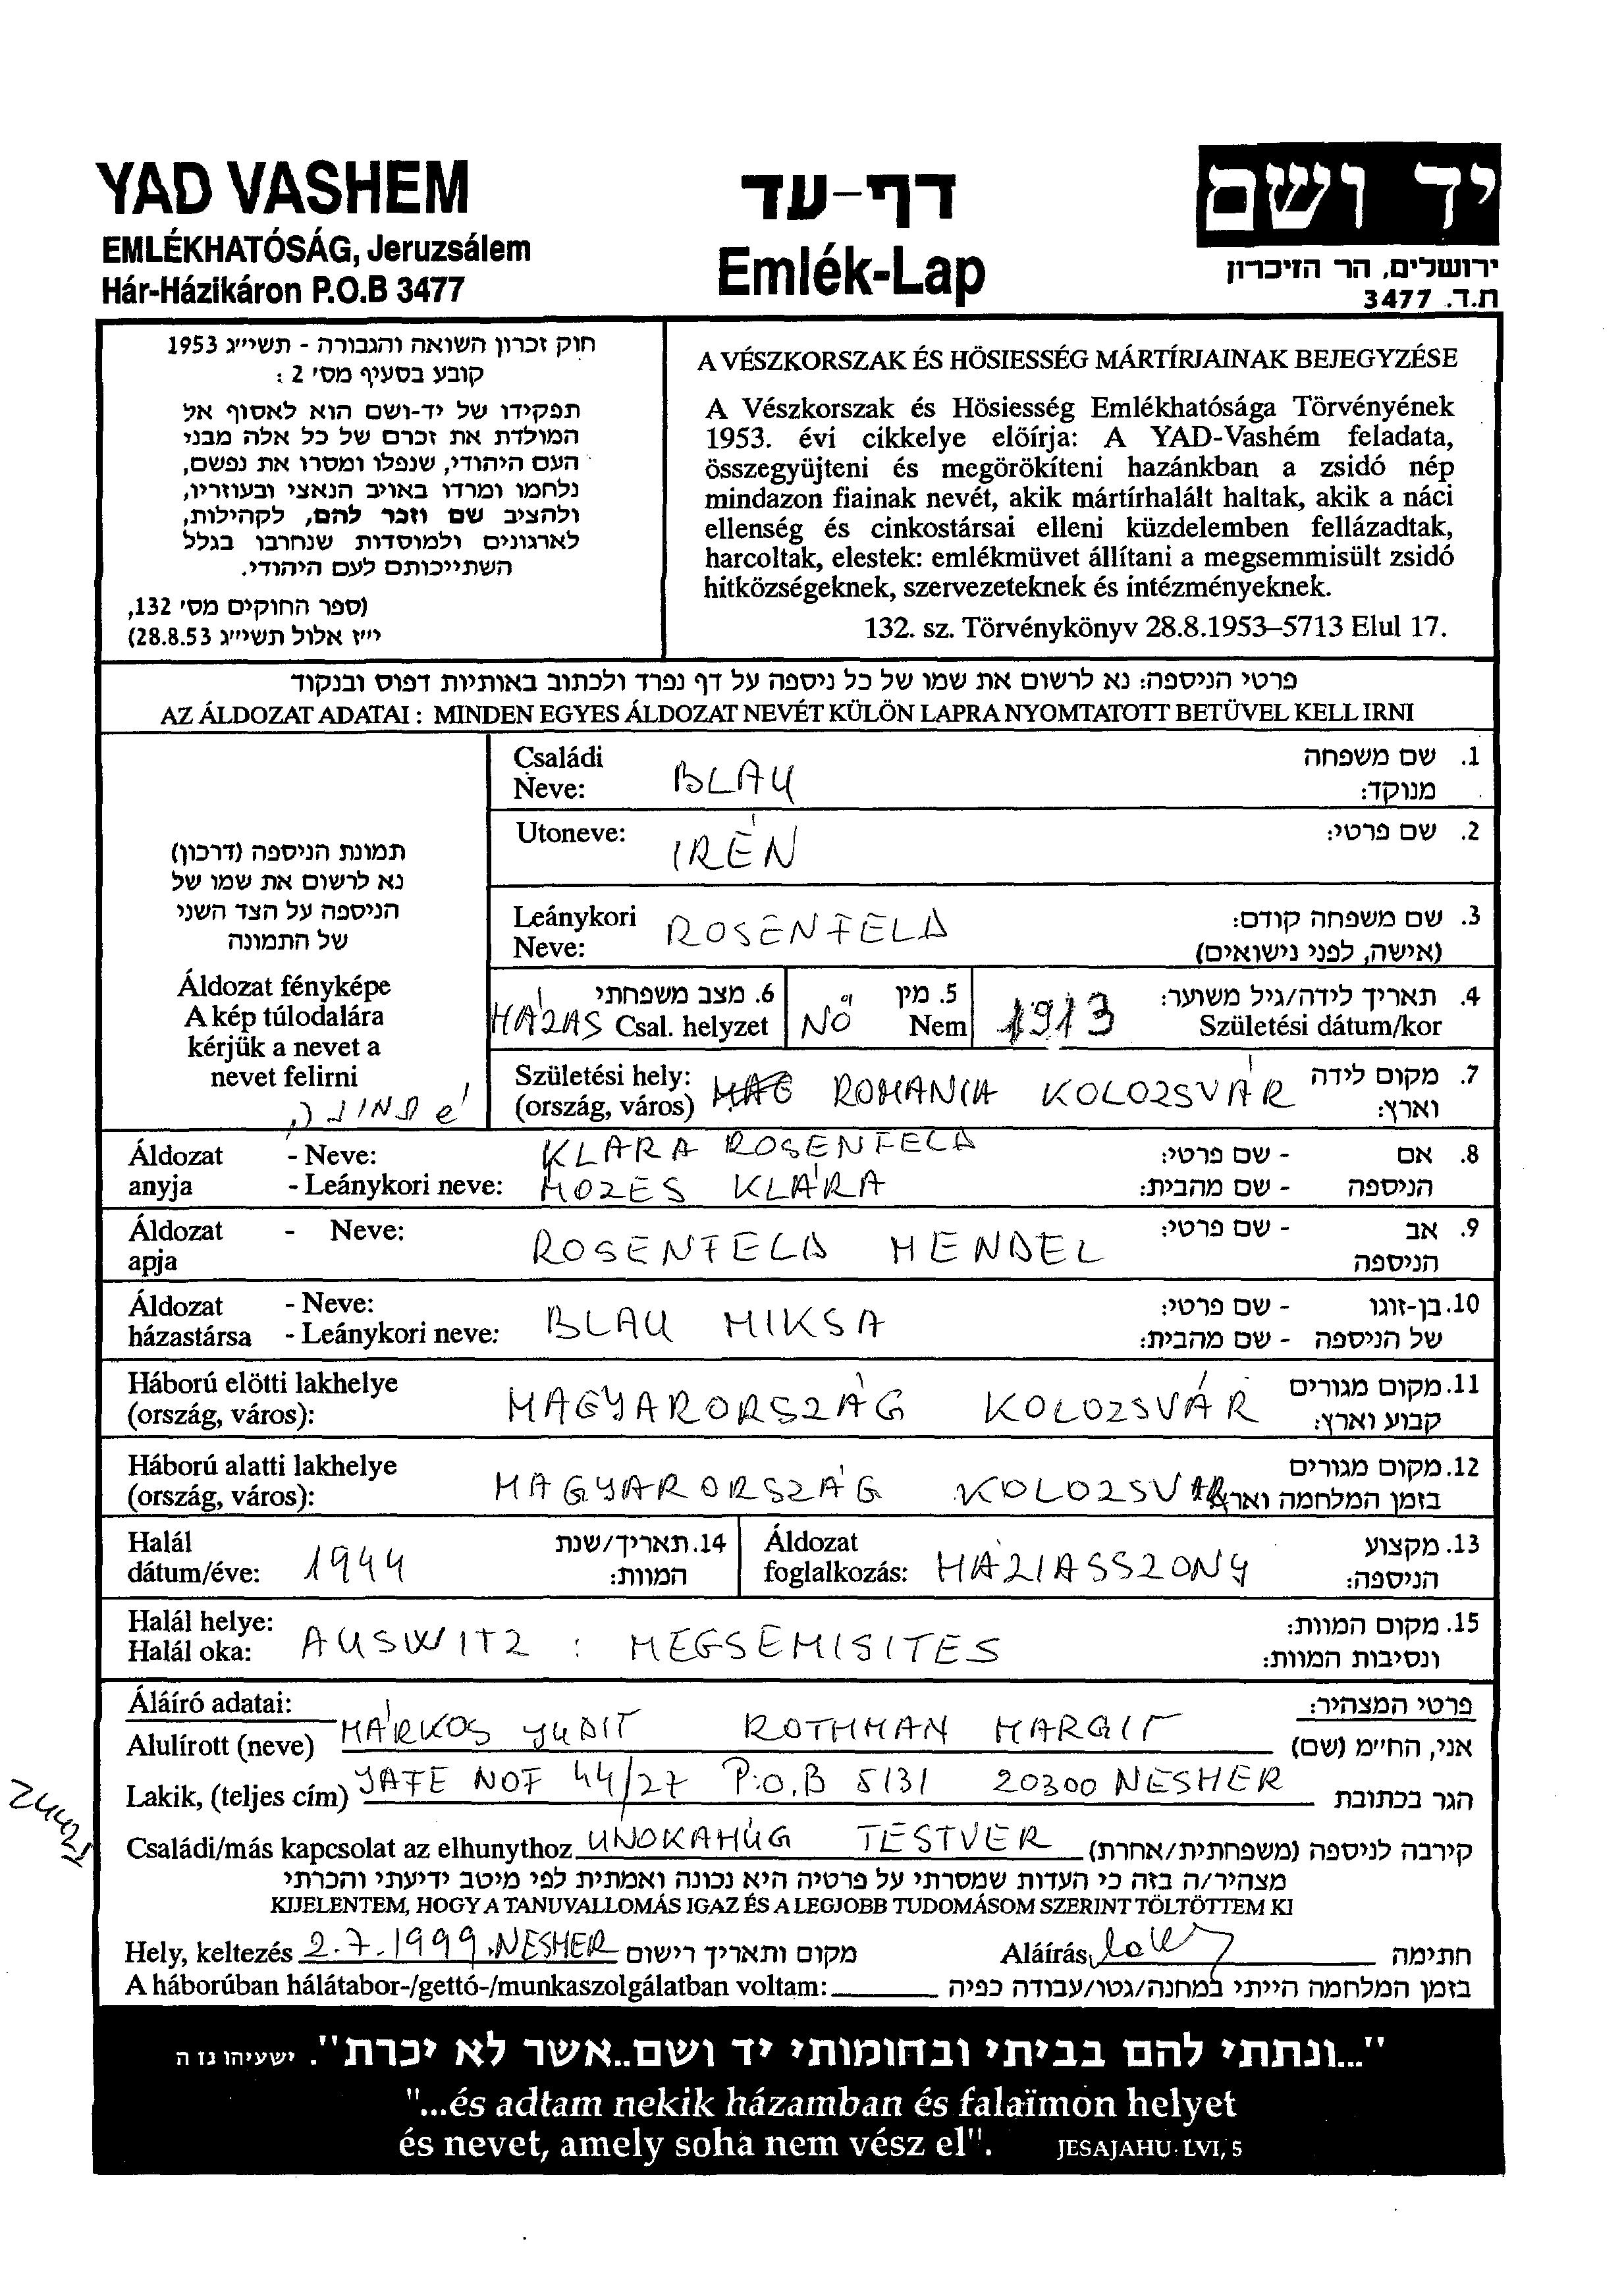 YAD VASHEM
EMLÉKHATÓSÁG, Jeruzsálem
Hár-Házikáron P.O.B 3477
דף-עד
Emlék-Lap
יד ושם
ירושלים, הר הזיכרון
ת.ד. 3477
חוק זכרון השואה והגבורה - תשי״ג 1953
קובע בסעיף מס׳ 2 :
תפקידו של יד-ושם הוא לאסוף אל
המולדת את זכרם של כל אלה מבני
העם היהודי, שנפלו ומסרו את נפשם,
נלחמו ומרדו באויב הנאצי ובעוזריו,
ולהציב שם וזכר להם, לקהילות,
לארגונים ולמוסדות שנחרבו בגלל
השתייכותם לעם היהודי.
(ספר החוקים מס׳ 132,
י״ז אלול תשי״ג 28.8.53)
A VÉSZKORSZAK ÉS HÖSIESSÉG MÁRTÍRJAINAK BEJEGYZÉSE
A Vészkorszak és Hösiesség Emlékhatósága Törvényének
1953. évi cikkelye elöírja: A YAD-Vashém feladata,
összegyüjteni és megörökíteni hazánkban a zsidó nép
mindazon fiainak nevét, akik mártírhalált haltak, akik a náci
ellenség és cinkostársai elleni küzdelemben fellázadtak,
harcoltak, elestek: emlékmüvet állítani a megsemmisült zsidó
hitközségeknek, szervezeteknek és intézményeknek.
132. sz. Törvénykönyv 28.8.1953–5713 Elul 17.
פרטי הניספה: נא לרשום את שמו של כל ניספה על דף נפרד ולכתוב באותיות דפוס ובנקוד
AZ ÁLDOZAT ADATAI : MINDEN EGYES ÁLDOZAT NEVÉT KÜLÖN LAPRA NYOMTATOTT BETÜVEL KELL IRNI
תמונת הניספה (דרכון)
נא לרשום את שמו של
הניספה על הצד השני
של התמונה
Áldozat fényképe
A kép túlodalára
kérjük a nevet a
nevet felirni
Családi
Neve: BLAU
1. שם משפחה
מנוקד:
Utoneve: IRÉN
2. שם פרטי:
Leánykori
Neve: ROSENFELD
3. שם משפחה קודם:
(אישה, לפני נישואים)
6. מצב משפחתי
HÁZAS Csal. helyzet
5. מין
NÖ Nem
1913
4. תאריך לידה/גיל משוער:
Születési dátum/kor
Születési hely:
(ország, város) MAG ROMANIA KOLOZSVÁR
7. מקום לידה
וארץ:
Áldozat - Neve: KLARA ROSENFELD
8. אם - שם פרטי:
anyja - Leánykori neve: MOZES KLÁRA
הניספה - שם מהבית:
Áldozat - Neve: ROSENFELD MENDEL
9. אב - שם פרטי:
apja
הניספה
Áldozat - Neve: BLAU MIKSA
10. בן-זוגו - שם פרטי:
házastársa - Leánykori neve:
של הניספה - שם מהבית:
Háború elötti lakhelye
(ország, város): MAGYARORSZÁG KOLOZSVÁR
11. מקום מגורים
קבוע וארץ:
Háború alatti lakhelye
(ország, város): MAGYARORSZÁG KOLOZSVÁR
12. מקום מגורים
בזמן המלחמה וארץ
Halál
dátum/éve: 1944
14. תאריך/שנת
המוות:
Áldozat
foglalkozás: HÁZIASSZONY
13. מקצוע
הניספה:
Halál helye:
Halál oka: AUSWITZ : MEGSEMISITES
15. מקום המוות:
ונסיבות המוות:
Áláíró adatai:
פרטי המצהיר:
Alulírott (neve) MÁRKOS YUDIT ROTHMAN MARGIT אני, הח״מ (שם)
Lakik, (teljes cím) YAFE NOF 44/27 P.O.B 5131 20300 NESHER הגר בכתובת
Családi/más kapcsolat az elhunythoz UNOKAHÚG TESTVER קירבה לניספה (משפחתית/אחרת)
מצהיר/ה בזה כי העדות שמסרתי על פרטיה היא נכונה ואמתית לפי מיטב ידיעתי והכרתי
KIJELENTEM, HOGY A TANUVALLOMÁS IGAZ ÉS A LEGJOBB TUDOMÁSOM SZERINT TÖLTÖTTEM KI
Hely, keltezés 2.7.1999. NESHER מקום ותאריך רישום Aláírás חתימה
A háborúban hálátabor-/gettó-/munkaszolgálatban voltam: בזמן המלחמה הייתי במחנה/גטו/עבודה כפיה
"...ונתתי להם בביתי ובחומותי יד ושם..אשר לא יכרת". ישעיהו נז ה
"...és adtam nekik házamban és falaïmon helyet
és nevet, amely soha nem vész el". JESAJAHU LVI, 5